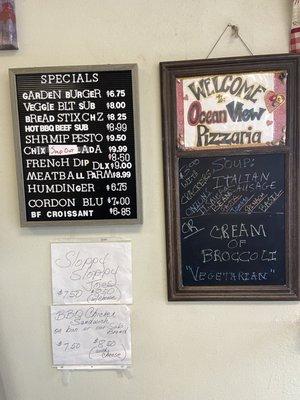 SPECIALS
GARDEN BURGER $6.75
VEGGIE BLT SUB $8.00
BREAD STIX CHZ $8.25
HOT BBQ BEEF SUB $8.99
SHRIMP PESTO $9.50
CHIX ADA $9.99
Sold Out
$8.50
FRENCH DIP DLX $9.00
MEATBALL PARM $8.99
HUMDINGER $6.75
CORDON BLU $7.00
BF CROISSANT $6.85
WELCOME
2
Ocean View
Pizzaria
SOUP:
ITALIAN
SAUSAGE
OR
CREAM
OF
BROCCOLI
"VEGETARIAN"
Sloppy
Sloppy
Joes
$7.50 $8.50
BBQ Chicken
Sandwich
on bun or our Sub
Bread
$7.50 $8.50
(with
cheese)